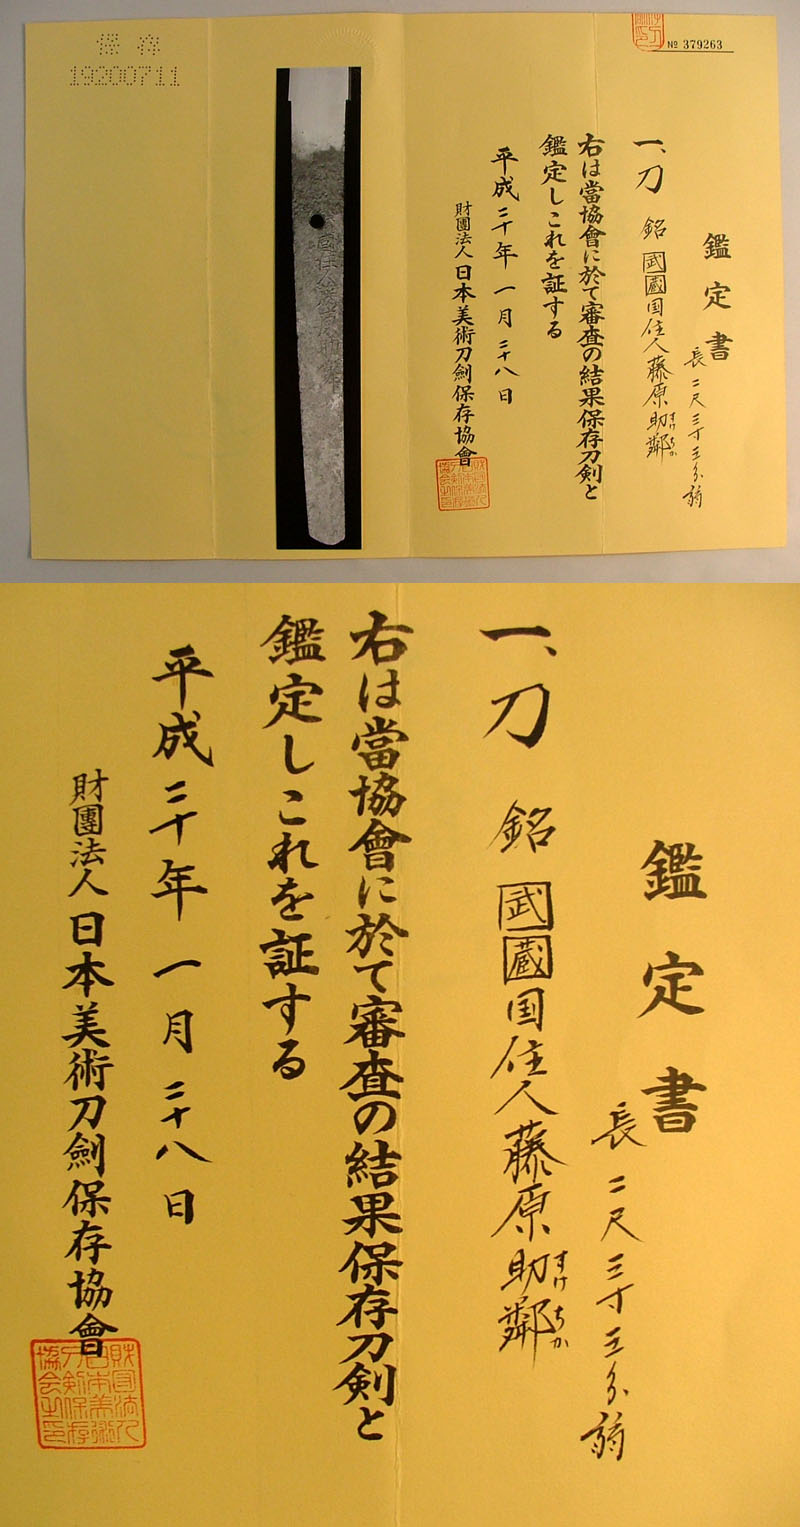 保存
19200711
№ 379263
鑑定書
長二尺三寸五分弱
一、刀 銘 武蔵国住人藤原助鄰
すけちか
右は當協會に於て審査の結果保存刀剣と
鑑定しこれを証する
平成二十年一月二十八日
財團法人日本美術刀劍保存協會
鑑定書
長二尺三寸五分弱
一、刀 銘 武蔵国住人藤原助鄰
すけちか
右は當協會に於て審査の結果保存刀剣と
鑑定しこれを証する
平成二十年一月二十八日
財團法人日本美術刀劍保存協會